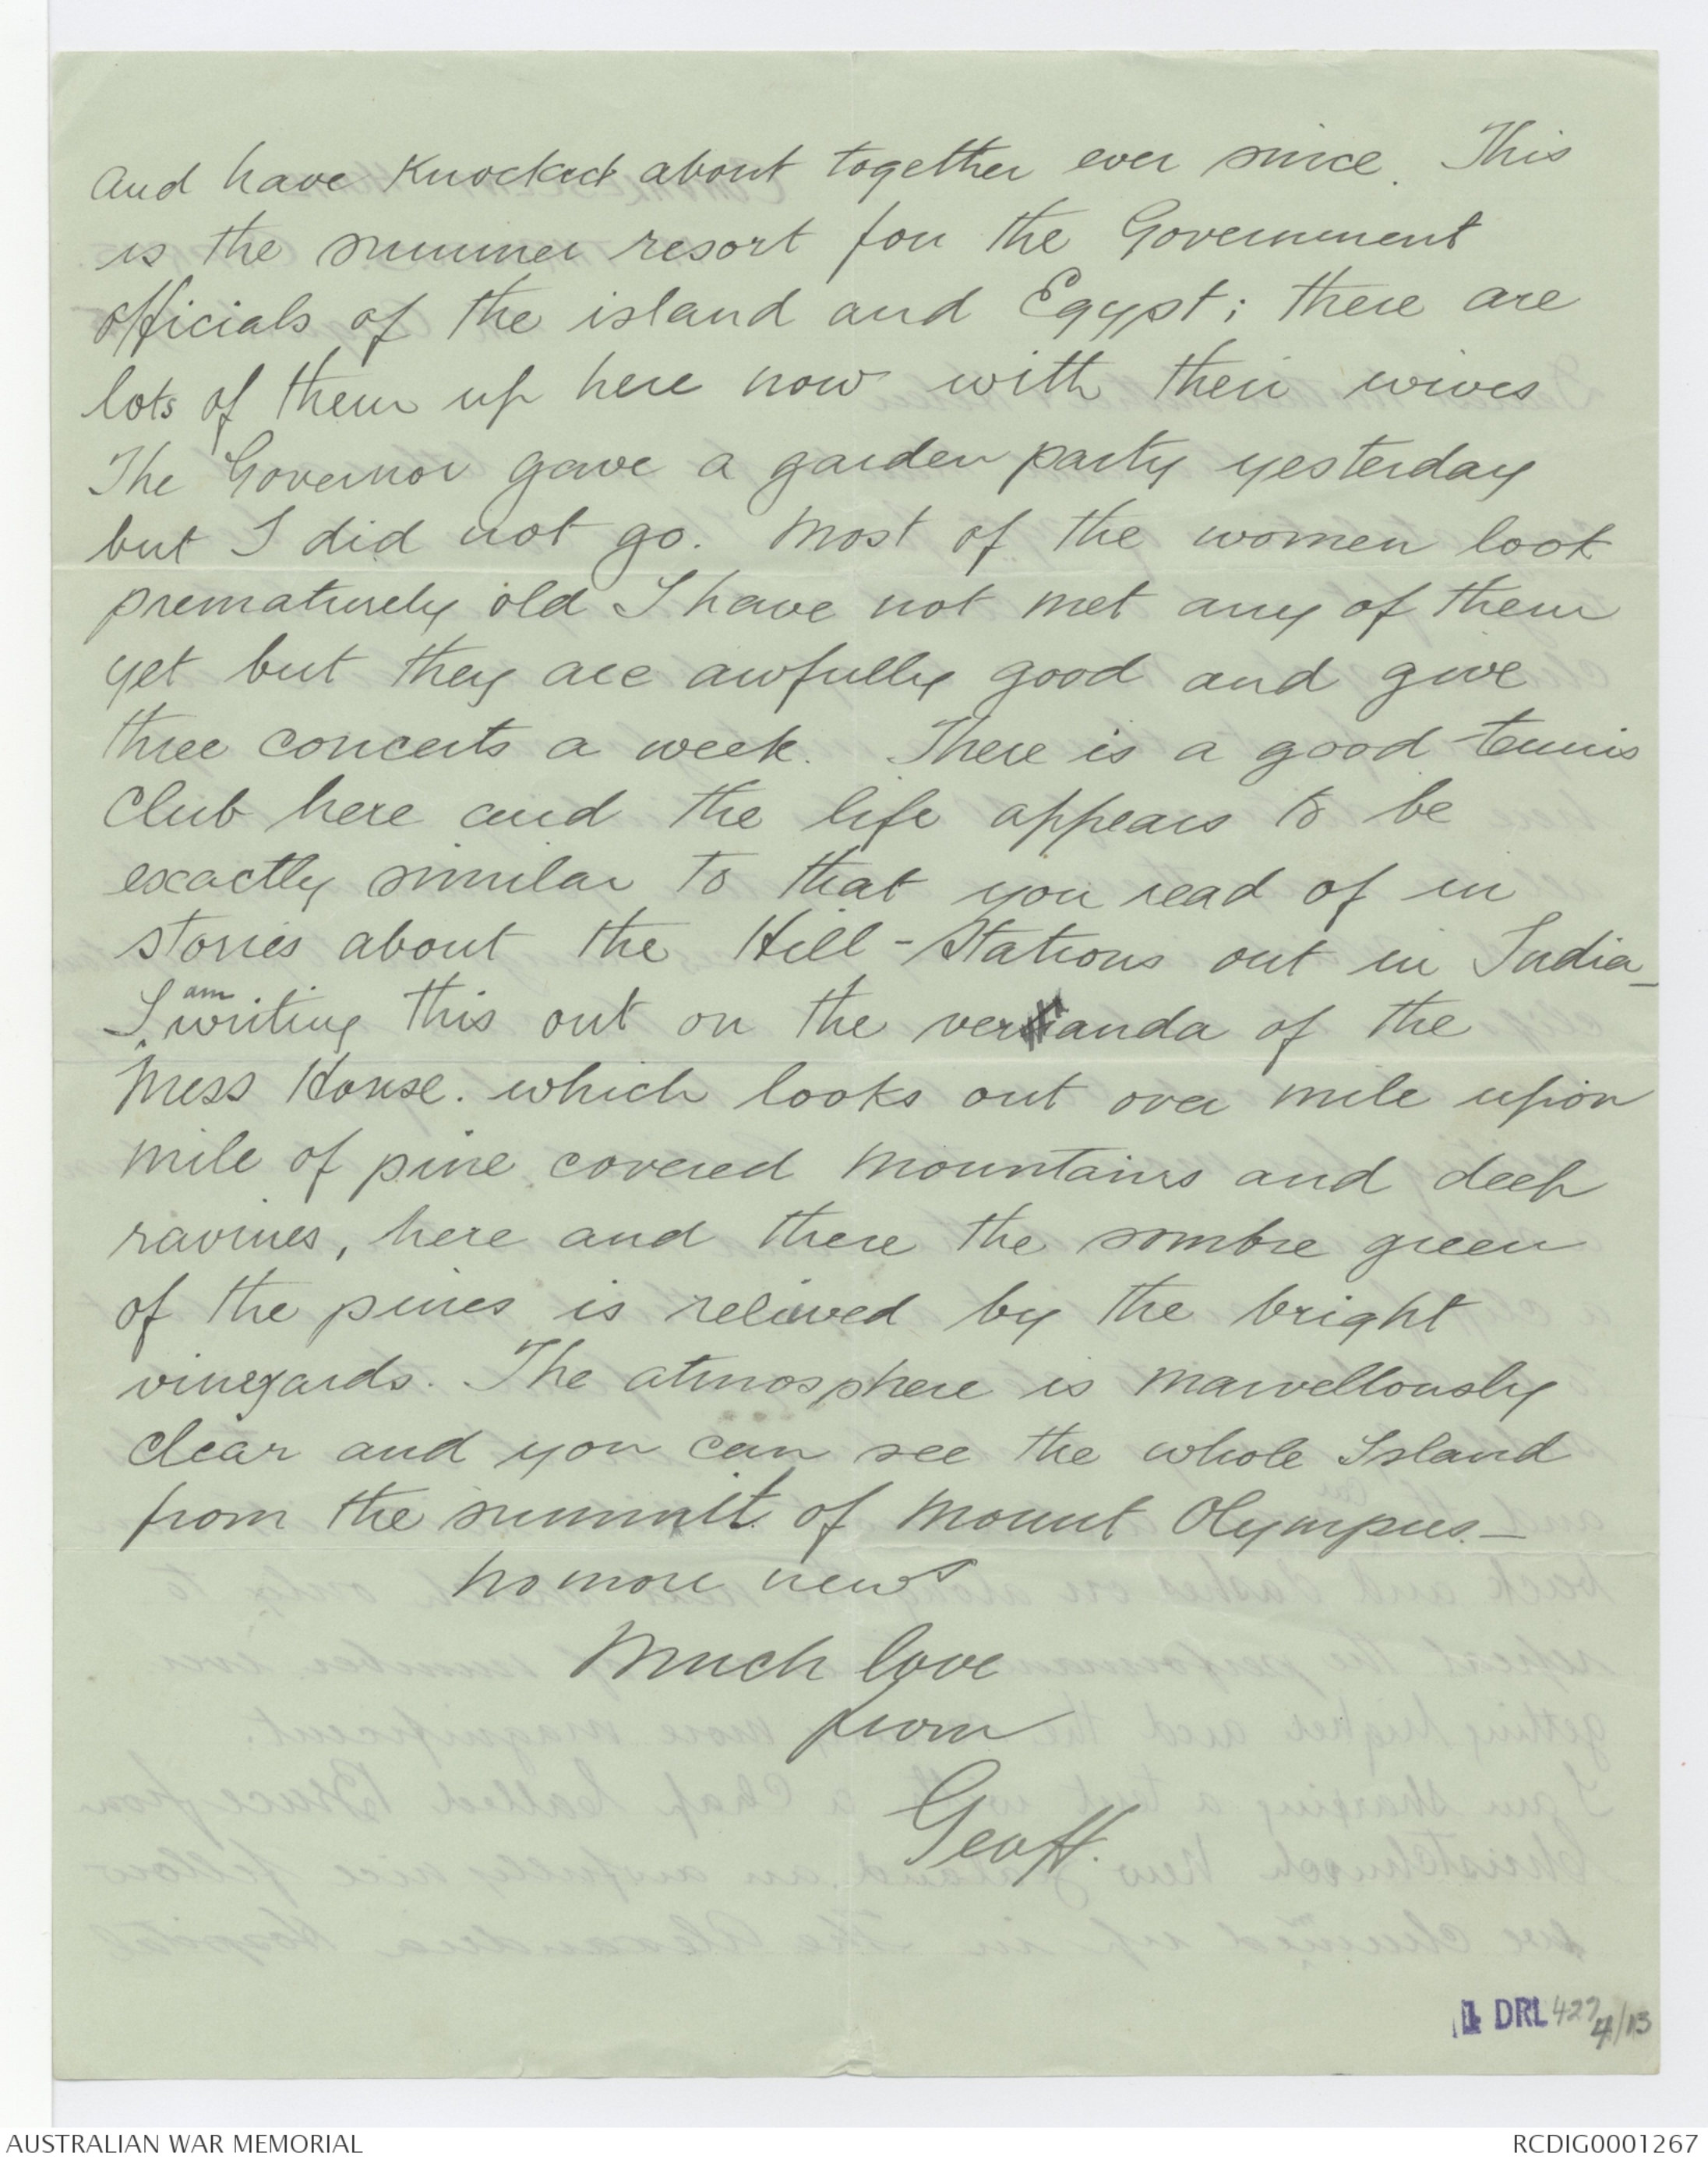 and have knocked about together ever since. This
is the summer resort for the Government
officials of the island and Egypt; there are
lots of them up here now with their wives
The Governor gave a garden party yesterday
but I did not go. Most of the women look
prematurely old I have not met any of them
yet but they are awfully good and give
three concerts a week. There is a good tennis
Club here and the life appears to be
exactly similar to that you read of in
stories about the Hill-Stations out in India_
I am writing this out on the veranda of the
Mess House. which looks out over mile upon
mile of pine covered mountains and deep
ravines, here and there the sombre green
of the pines is relieved by the bright
vineyards. The atmosphere is marvellously
clear and you can see the whole Island
from the summit of Mount Olympus.—
No more news
Much love
from
Geoff.
1 DRL 427
4/13
AUSTRALIAN WAR MEMORIAL
RCDIG0001267